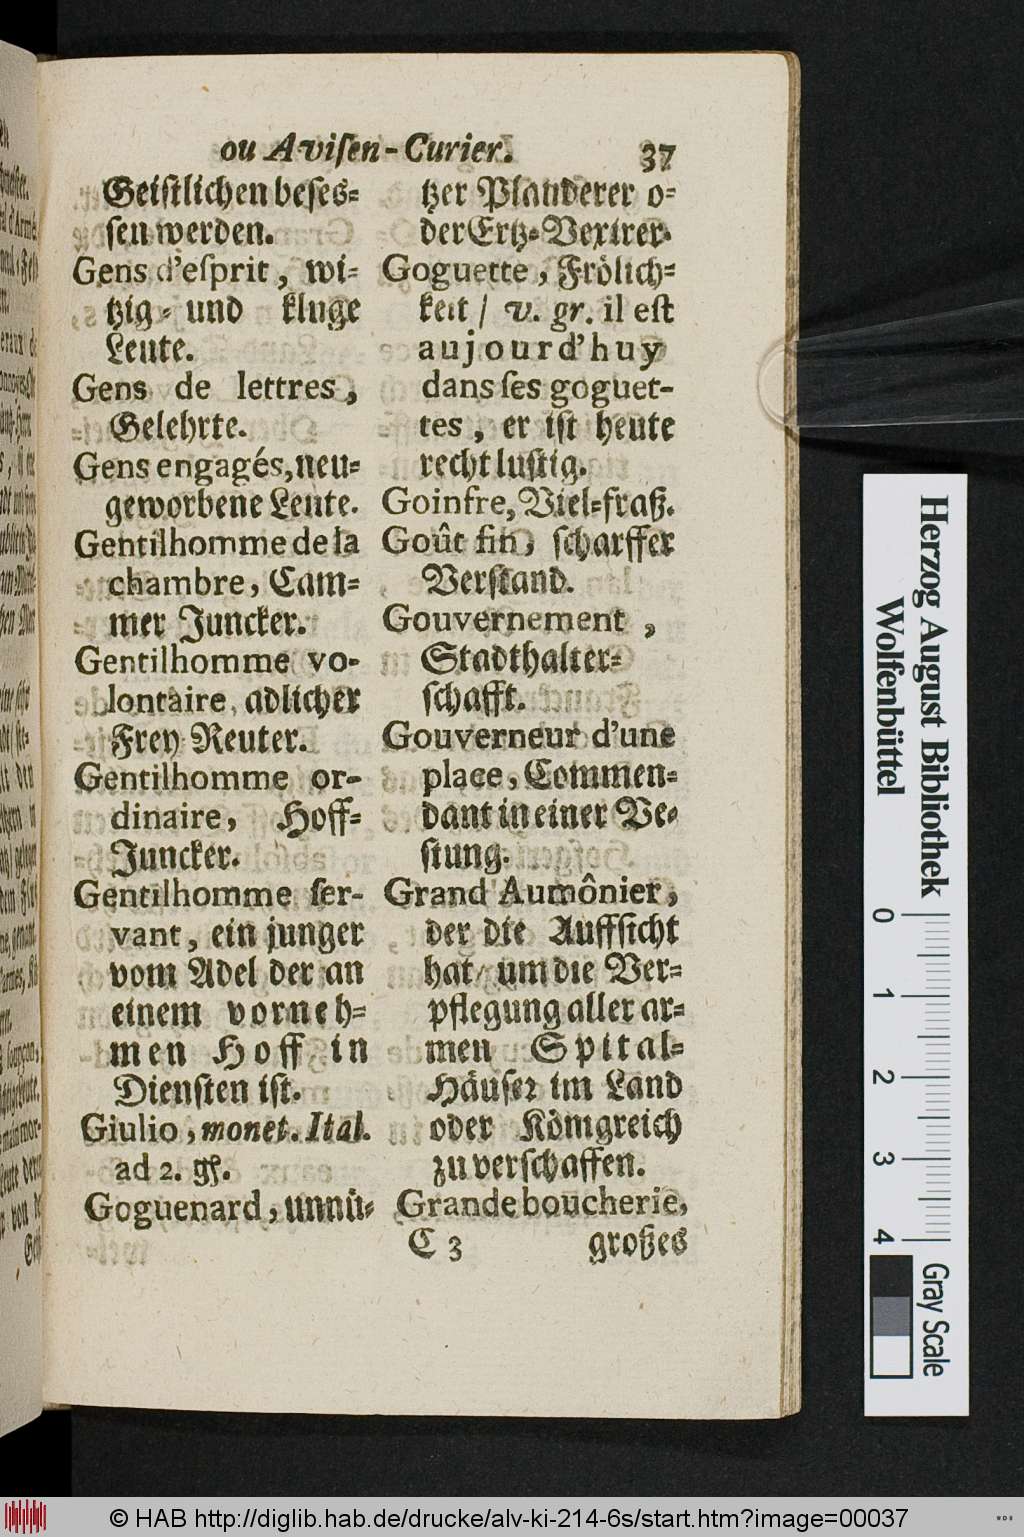 ou Aviſen-Curier. 37
Geiſtlichen beſes⸗
ſen werden.
Gens d'eſprit, wi⸗
tzig⸗ und kluge
Leute.
Gens de lettres,
Gelehrte.
Gens engagés, neu⸗
geworbene Leute.
Gentilhomme de la
chambre, Cam⸗
mer Juncker.
Gentilhomme vo-
lontaire, adlicher
Frey Reuter.
Gentilhomme or-
dinaire, Hoff⸗
Juncker.
Gentilhomme ſer-
vant, ein junger
vom Adel der an
einem vorneh⸗
men Hoff in
Dienſten iſt.
Giulio, monet. Ital.
ad 2. gſ.
Goguenard, unnü⸗
tzer Plauderer o⸗
der Ertz⸗Vexirer.
Goguette, Frölich⸗
keit / v. gr. il eſt
aujourd'huy
dans ſes goguet-
tes, er iſt heute
recht luſtig.
Goinfre, Viel⸗fraß.
Goût fin, ſcharffer
Verſtand.
Gouvernement,
Stadthalter⸗
ſchafft.
Gouverneur d'une
place, Commen⸗
dant in einer Ve⸗
ſtung.
Grand Aumônier,
der die Auffſicht
hat / um die Ver⸗
pflegung aller ar⸗
men Spital⸗
Häuſer im Land
oder Königreich
zu verſchaffen.
Grande boucherie,
C 3 großes
Herzog August Bibliothek
Wolfenbüttel
0 1 2 3 4
Gray Scale
© HAB http://diglib.hab.de/drucke/alv-ki-214-6s/start.htm?image=00037